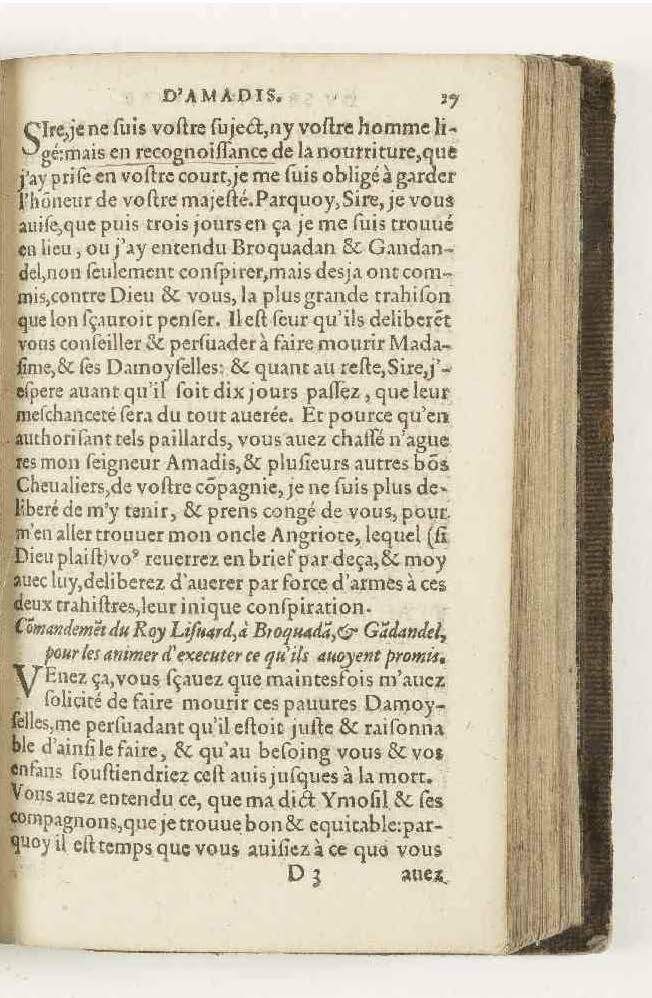 D'AMADIS. 27
SIre,je ne ſuis voſtre ſuject,ny voſtre homme li-
gé:mais en recognoiſſance de la nourriture,que
j'ay priſe en voſtre court,je me ſuis obligé à garder
l'hõneur de voſtre majeſté.Parquoy,Sire,je vous
auiſe,que puis trois jours en ça je me ſuis trouué
en lieu, ou j'ay entendu Broquadan & Gandan-
del,non ſeulement conſpirer,mais desja ont com-
mis,contre Dieu & vous, la plus grande trahiſon
que lon ſçauroit penſer. Il eſt ſeur qu'ils deliberẽt
vous conſeiller & perſuader à faire mourir Mada-
ſime,& ſes Damoyſelles: & quant au reſte,Sire,j'-
eſpere auant qu'il ſoit dix jours paſſez, que leur
meſchanceté ſera du tout auerée. Et pource qu'en
authoriſant tels paillards, vous auez chaſſé n'ague
res mon ſeigneur Amadis,& pluſieurs autres bõs
Cheualiers,de voſtre cõpagnie, je ne ſuis plus de-
liberé de m'y tenir, & prens congé de vous, pour
m'en aller trouuer mon oncle Angriote, lequel (ſi
Dieu plaiſt)voꝰ reuerrez en brief par deça,& moy
auec luy,deliberez d'auerer par force d'armes à ces
deux trahiſtres,leur inique conſpiration.
Cõmandemẽt du Roy Liſuard,à Broquadã,& Gãdandel,
pour les animer d'executer ce qu'ils auoyent promis.
VEnez ça,vous ſçauez que maintesfois m'auez
ſolicité de faire mourir ces pauures Damoy-
ſelles,me perſuadant qu'il eſtoit juſte & raiſonna
ble d'ainſi le faire, & qu'au beſoing vous & vos
enfans ſouſtiendriez ceſt auis juſques à la mort.
Vous auez entendu ce, que ma dict Ymoſil & ſes
compagnons,que je trouue bon & equitable:par-
quoy il eſt temps que vous auiſiez à ce que vous
D 3 auez